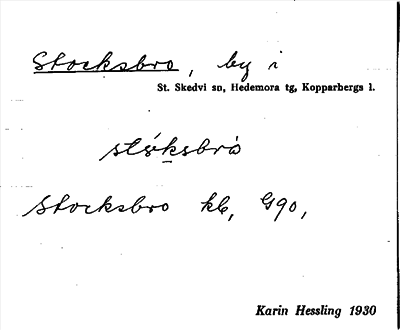 Stocksbro, by i
St. Skedvi sn, Hedemora tg, Kopparbergs l.
stóksbrò
Stocksbro kb, G90,
Karin Hessling 1930